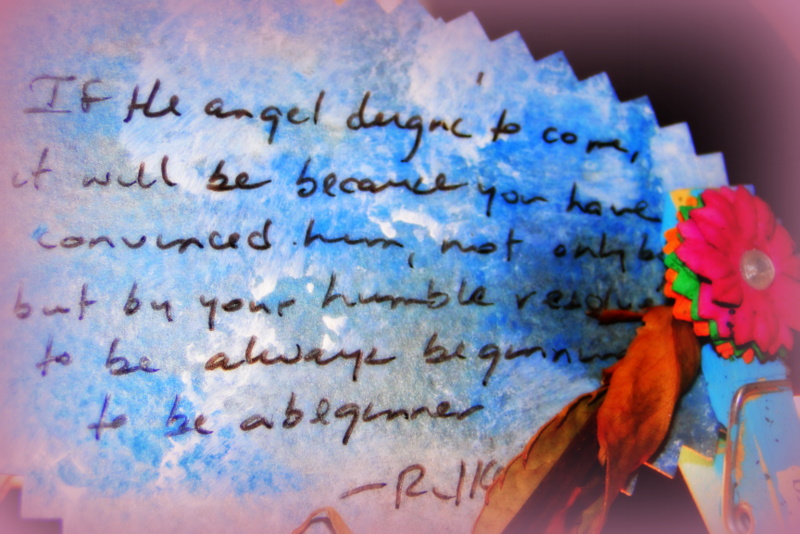 If the angel deigne to come,
it will be because you have
convinced him, not only b
but by your humble resolve
to be always beginnin
to be a beginner
- Rilk